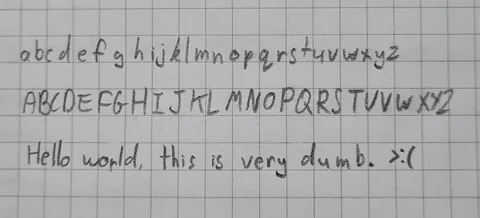 abcdefghijklmnopqrstuvwxyz
ABCDEFGHIJKLMNOPQRSTUVWXYZ
Hello world, this is very dumb. >:(